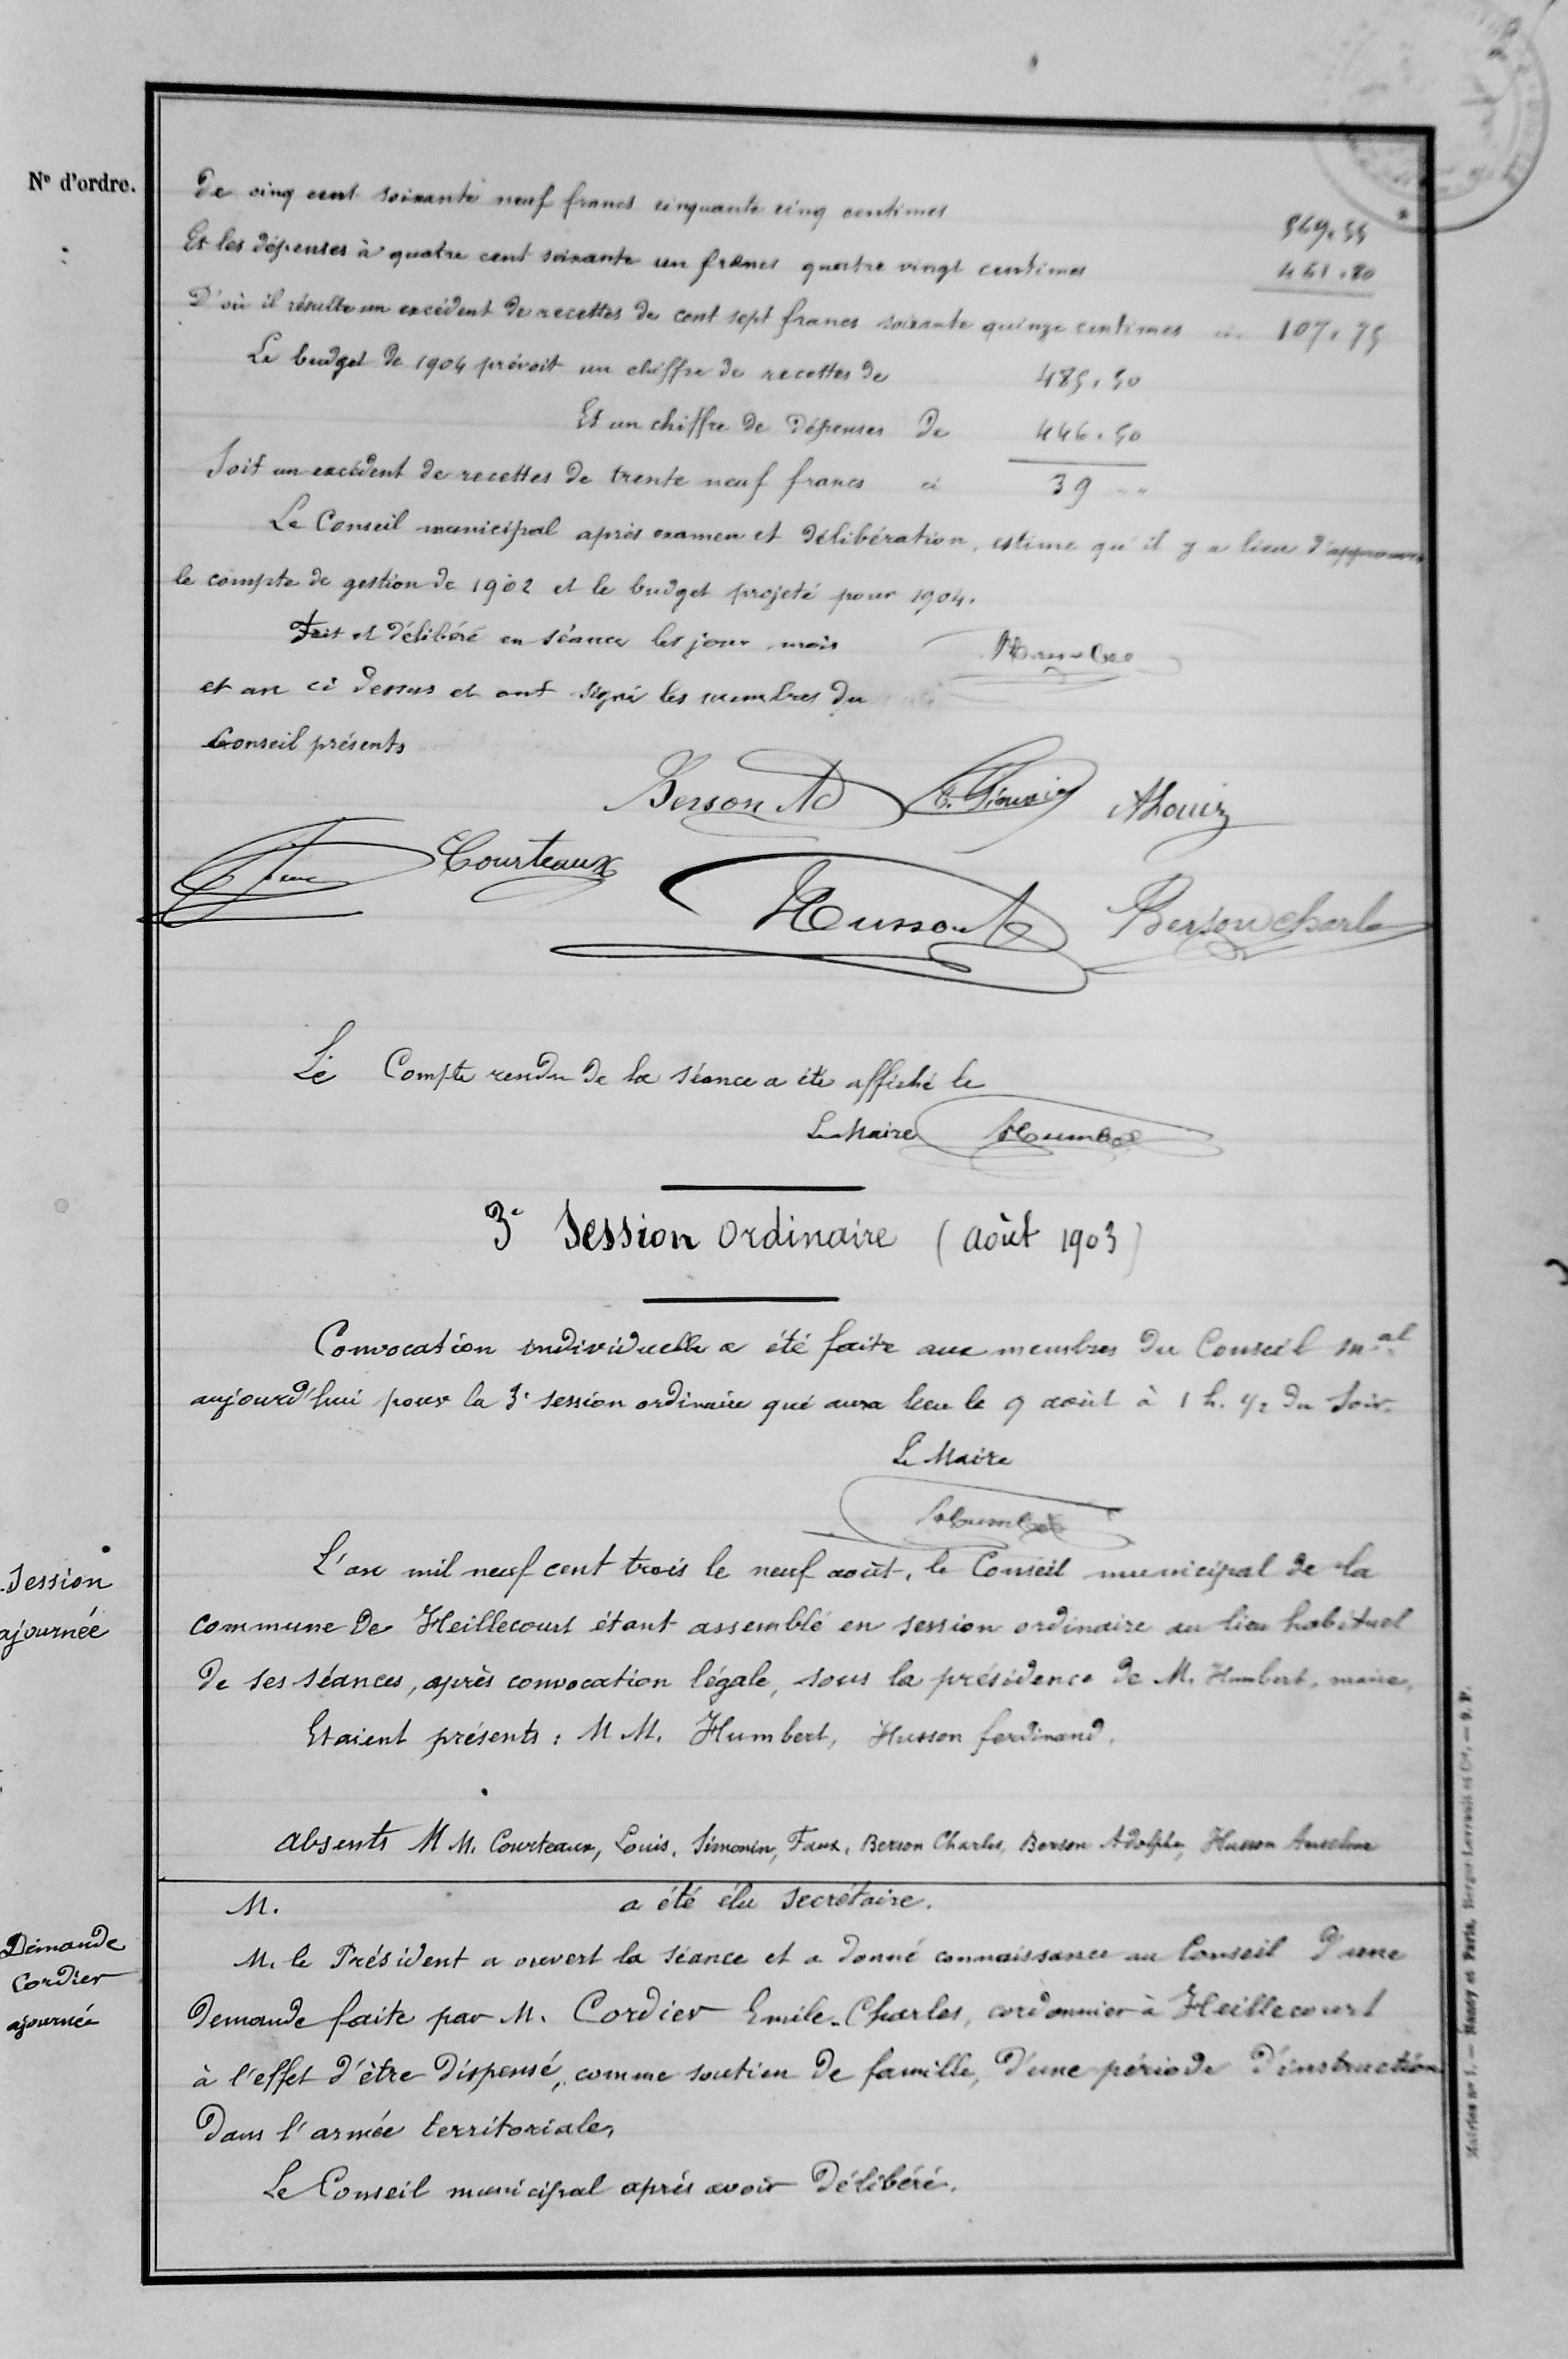 N° d'ordre.
De cinq cent soixante neuf francs cinquante cinq centimes 569.55
Et les dépenses à quatre cent soixante un francs quatre vingt centimes 461.80
D'où il résulte un excédent de recettes de cent sept francs soixante quinze centimes ci. 107.75
Le budget de 1904 prévoit un chiffre de recettes de 485.50
Et un chiffre de dépenses de 446.50
Soit un excédent de recettes de trente neuf francs ci 39 ""
Le Conseil municipal après examen et délibération, estime qu'il y a lieu d'approuver
le compte de gestion de 1902 et le budget projeté pour 1904.
Fait et délibéré en séance les jour, mois
Humbert
et an ci dessus et ont signé les membres du
Conseil présents
Berson Ad ALouis
Courteaux
Husson Berson Charle
Le Compte rendu de la séance a été affiché le
Le Maire Humbert
3e Session ordinaire (août 1903)
Convocation individuelle a été faite aux membres du Conseil mal
aujourd'hui pour la 3e session ordinaire qui aura lieu le 9 août à 1 h. 1/2 du soir.
Le Maire
Humbert
Session
ajournée
L'an mil neuf cent trois le neuf août, le Conseil municipal de la
commune de Heillecourt étant assemblé en session ordinaire au lieu habituel
de ses séances, après convocation légale, sous la présidence de M. Humbert, maire,
Etaient présents : M M. Humbert, Husson ferdinand.
Absents M M. Courteaux, Louis, Simonin, Faux, Berson Charles, Berson Adolphe, Husson Anselme
M. a été élu secrétaire.
Demande
Cordier
ajournée
M. le Président a ouvert la séance et a donné connaissance au Conseil d'une
demande faite par M. Cordier Emile-Charles, cordonnier à Heillecourt
à l'effet d'être dispensé, comme soutien de famille, d'une période d'instruction
dans l'armée territoriale,
Le Conseil municipal après avoir délibéré.
Mairies n° 1. — Nancy et Paris, Berger-Levrault et Cie. — 9. P.